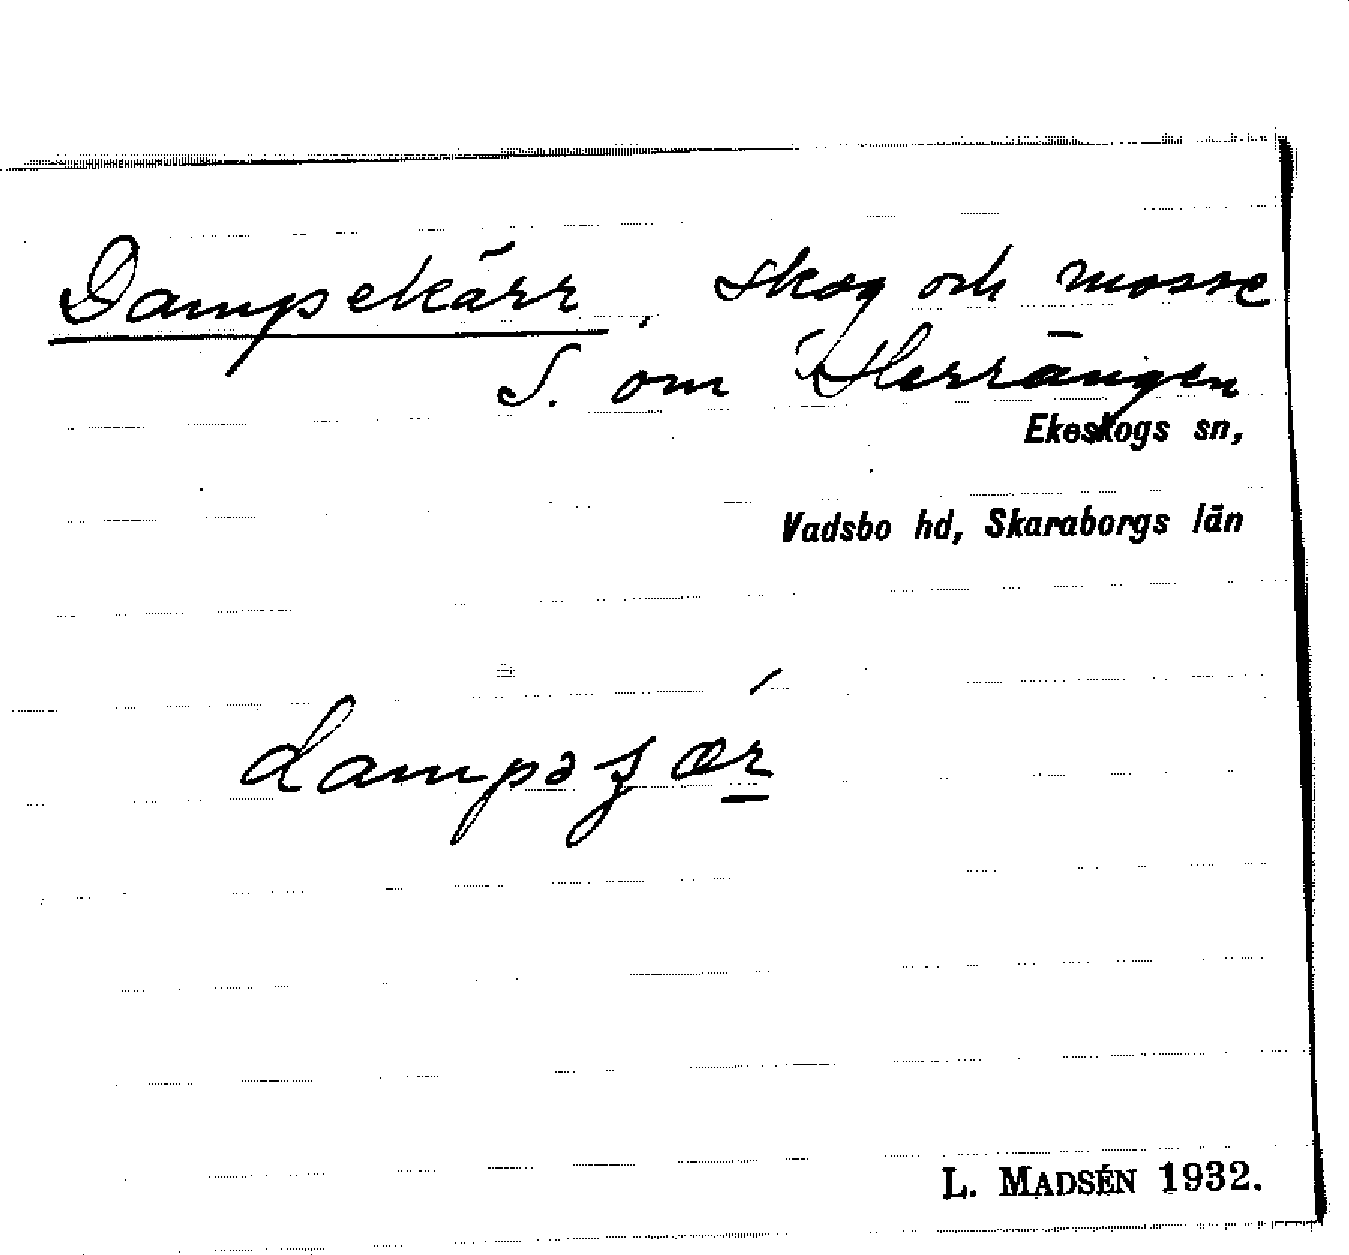 Dampekärr, skog och mosse
S. om Herrängen
Ekeskogs sn,
Vadsbo hd, Skaraborgs län
L. MADSÉN 1932.